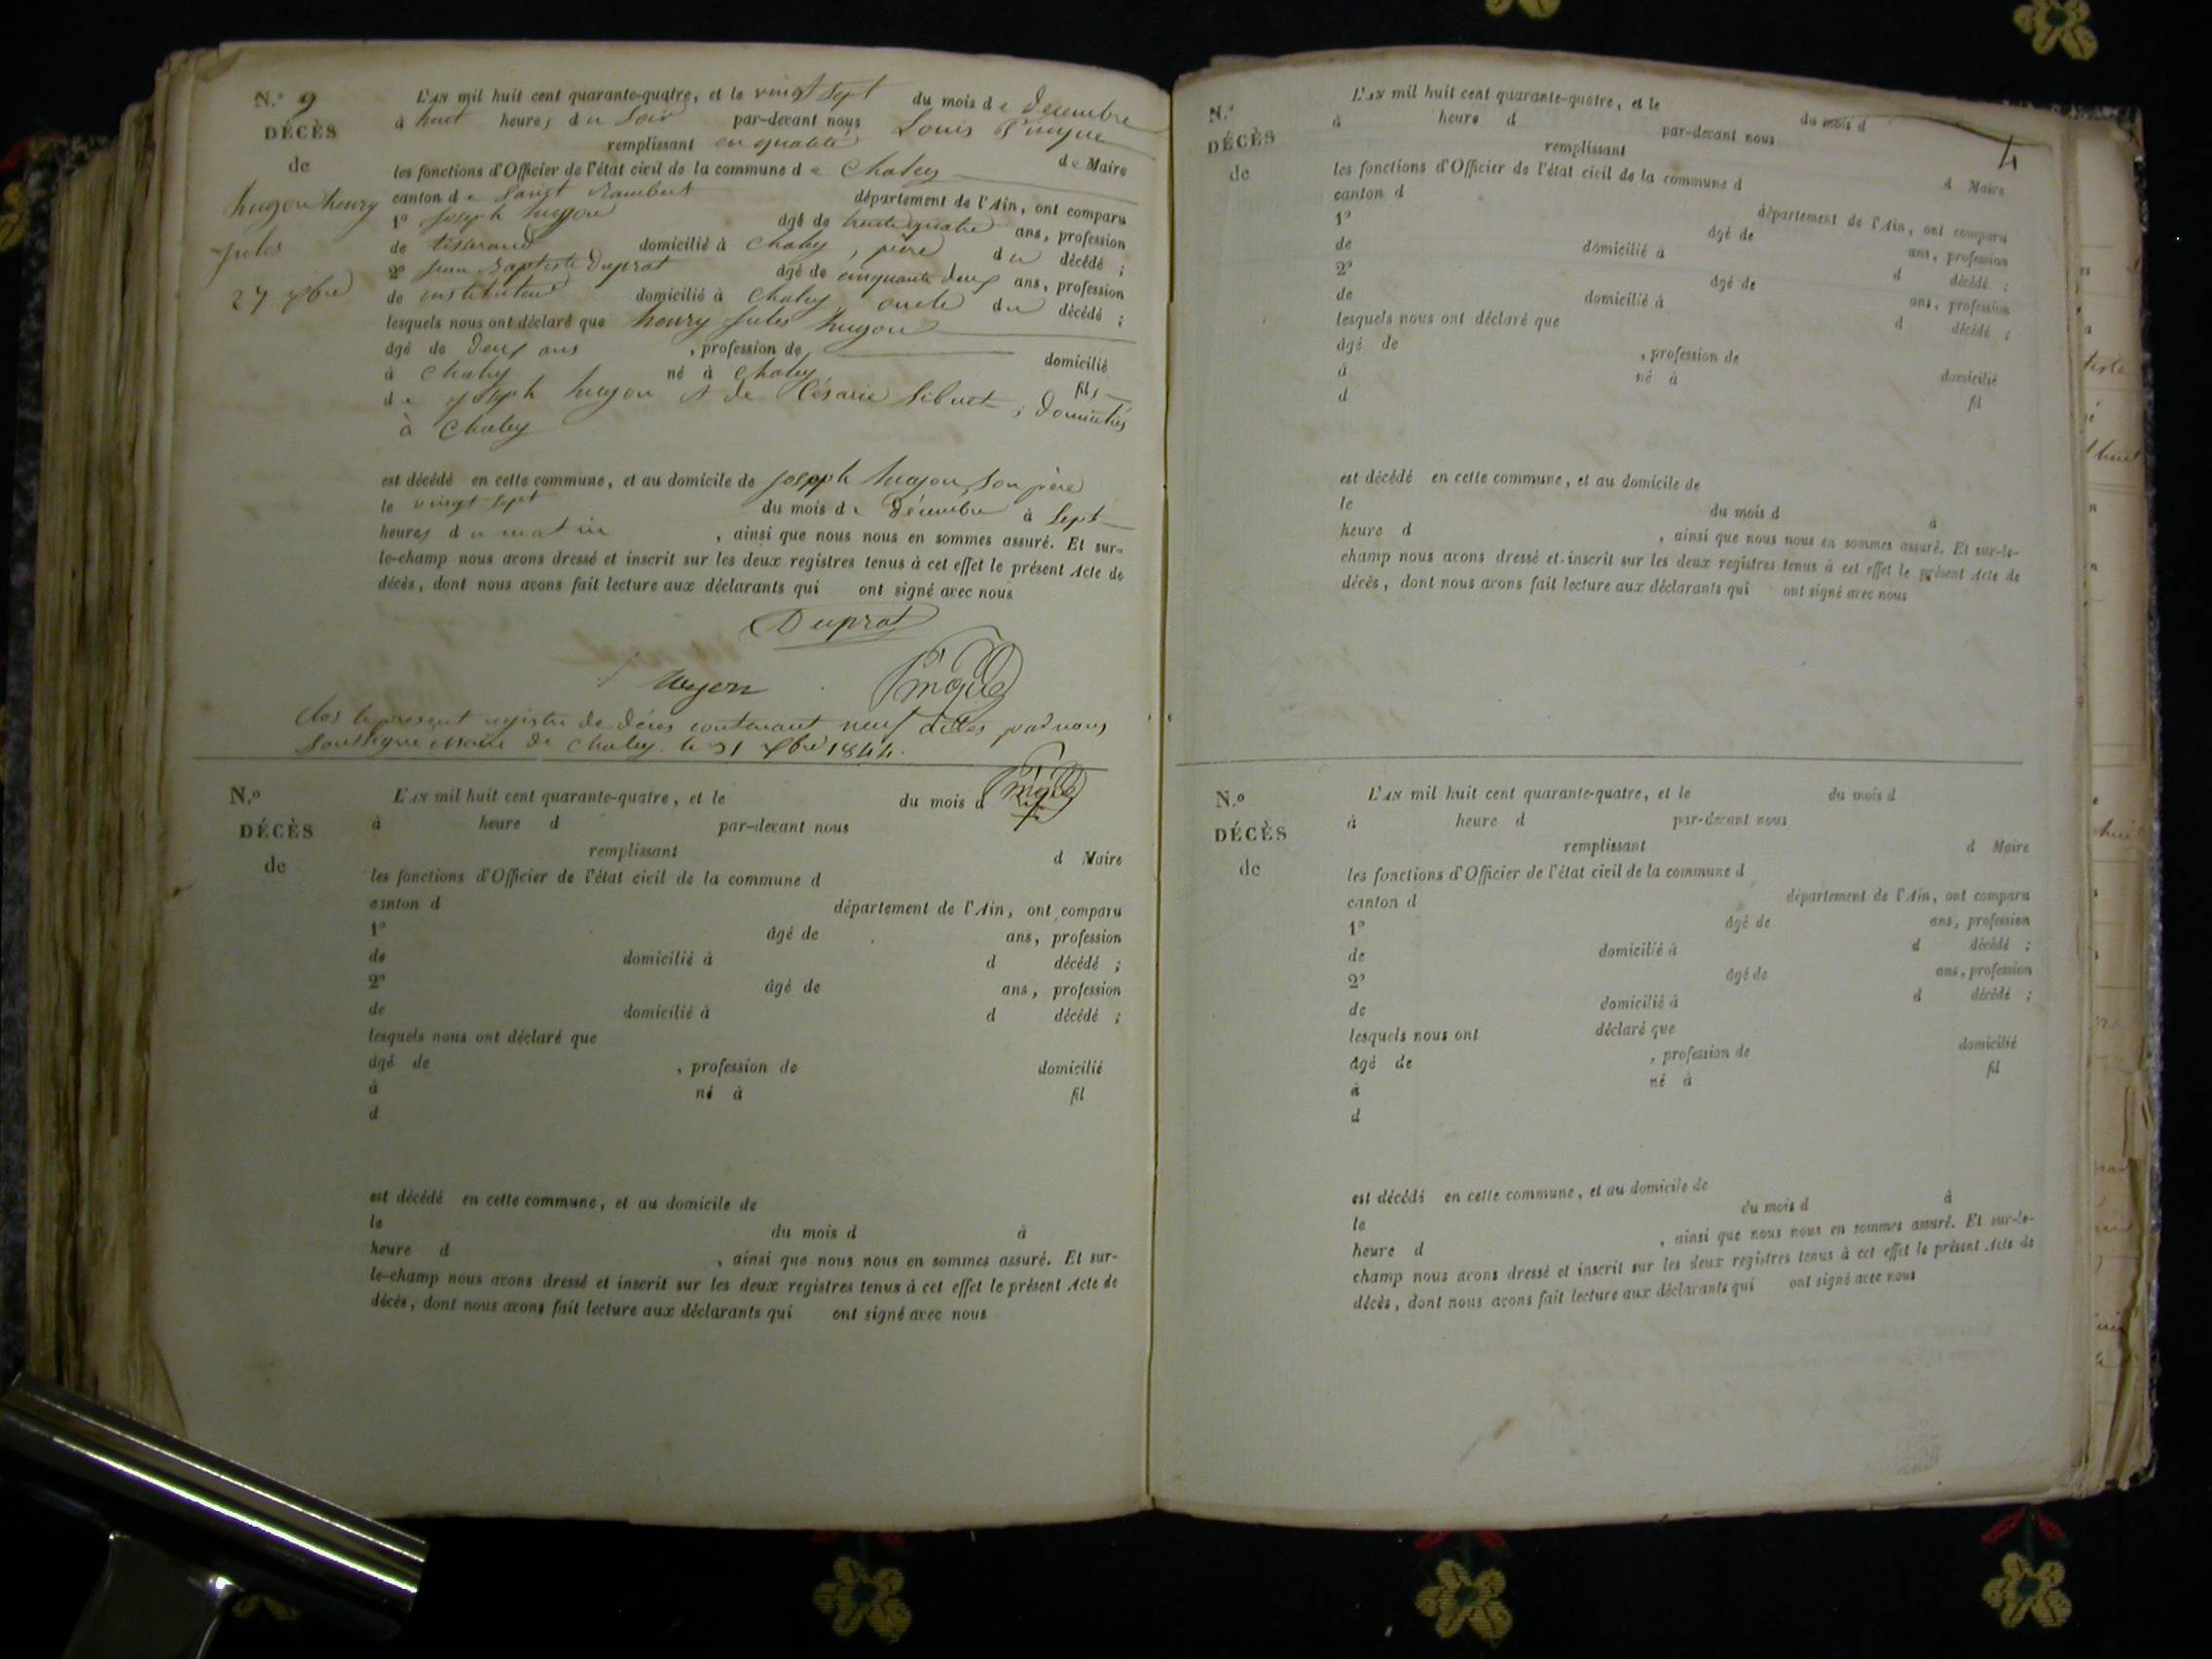 N.° 9
DÉCÈS
de
hugon henry
jules
27 xbre
L'AN mil huit cent quarante-quatre, et le vingt sept du mois de decembre
à huit heures du soir par-devant nous Louis Pingue
remplissant en qualité de Maire
les fonctions d'Officier de l'état civil de la commune de Chaley
canton de Saint Rambert département de l'Ain, ont comparu
1° joseph hugon âgé de trente quatre ans, profession
de tisserand domicilié à Chaley, père du décédé ;
2° jean Baptiste Duprat âgé de cinquante deux ans, profession
de instituteur domicilié à Chaley oncle du décédé ;
lesquels nous ont déclaré que henry jules hugon
âgé de deux ans , profession de domicilié
à Chaley né à Chaley fils
de joseph hugon et de Césarie Sibuet ; domiciliés
à Chaley
est décédé en cette commune, et au domicile de joseph hugon, son père
le vingt sept du mois de décembre à sept
heures du matin , ainsi que nous nous en sommes assuré. Et sur-
le-champ nous avons dressé et inscrit sur les deux registres tenus à cet effet le présent Acte de
décès, dont nous avons fait lecture aux déclarants qui ont signé avec nous
Duprat
hugon Pingue
Clos le présent registre de décès contenant neuf actes par nous
soussigné Maire de Chaley le 31 xbre 1844.
Pingue
N.°
DÉCÈS
de
L'AN mil huit cent quarante-quatre, et le du mois d
à heure d par-devant nous
remplissant d Maire
les fonctions d'Officier de l'état civil de la commune d
canton d département de l'Ain, ont comparu
1° âgé de ans, profession
de domicilié à d décédé ;
2° âgé de ans, profession
de domicilié à d décédé ;
lesquels nous ont déclaré que
âgé de , profession de domicilié
à né à fil
d
est décédé en cette commune, et au domicile de
le du mois d à
heure d , ainsi que nous nous en sommes assuré. Et sur-
le-champ nous avons dressé et inscrit sur les deux registres tenus à cet effet le présent Acte de
décès, dont nous avons fait lecture aux déclarants qui ont signé avec nous
4
N.°
DÉCÈS
de
L'AN mil huit cent quarante-quatre, et le du mois d
à heure d par-devant nous
remplissant d Maire
les fonctions d'Officier de l'état civil de la commune d
canton d département de l'Ain, ont comparu
1° âgé de ans, profession
de domicilié à d décédé ;
2° âgé de ans, profession
de domicilié à d décédé ;
lesquels nous ont déclaré que
âgé de , profession de domicilié
à né à fil
d
est décédé en cette commune, et au domicile de
le du mois d à
heure d , ainsi que nous nous en sommes assuré. Et sur-le-
champ nous avons dressé et inscrit sur les deux registres tenus à cet effet le présent Acte de
décès, dont nous avons fait lecture aux déclarants qui ont signé avec nous
N.°
DÉCÈS
de
L'AN mil huit cent quarante-quatre, et le du mois d
à heure d par-devant nous
remplissant d Maire
les fonctions d'Officier de l'état civil de la commune d
canton d département de l'Ain, ont comparu
1° âgé de ans, profession
de domicilié à d décédé ;
2° âgé de ans, profession
de domicilié à d décédé ;
lesquels nous ont déclaré que
âgé de , profession de domicilié
à né à fil
d
est décédé en cette commune, et au domicile de
le du mois d à
heure d , ainsi que nous nous en sommes assuré. Et sur-le-
champ nous avons dressé et inscrit sur les deux registres tenus à cet effet le présent Acte de
décès, dont nous avons fait lecture aux déclarants qui ont signé avec nous